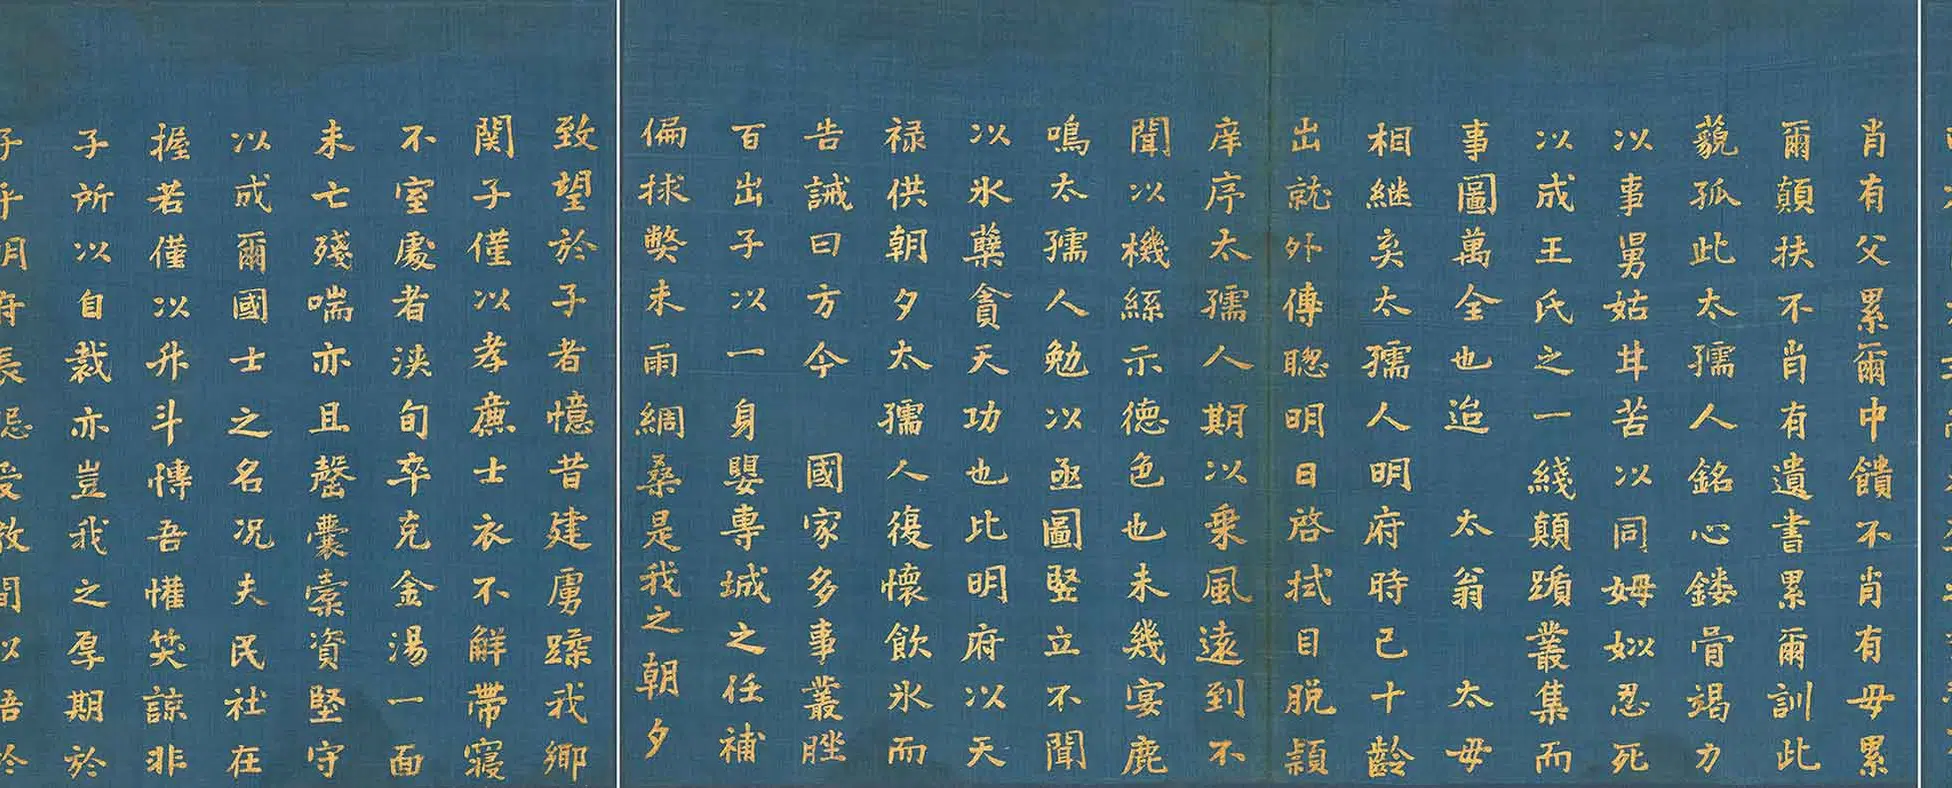 肖有父累爾中饋不肖有母累
爾顛扶不肖有遺書累爾訓此
藐孤此太孺人銘心鏤骨竭力
以事男姑甘苦以同姆姒忍死
以成王氏之一綫顛躓叢集而
事圖萬全也迨 太翁 太母
相継矣太孺人明府時已十齡
出就外傅聰明日啓拭目脫穎
庠序太孺人期以乗風遠到不
聞以機絲示德色也未幾宴鹿
鳴太孺人勉以亟圖竪立不聞
以氷蘖貪天功也比明府以天
禄供朝夕太孺人復懷飲氷而
告誡曰方今 國家多事叢脞
百出子以一身嬰專城之任補
偏捄獘未雨綢桑是我之朝夕
致望於子者憶昔建虜蹂我鄉
関子僅以孝廉士衣不解帶寢
不室處者浹旬卒克金湯一面
未亡殘喘亦且罄囊槖資堅守
以成爾國士之名况夫民社在
握若僅以升斗慱吾懽笑諒非
子所以自裁亦豈我之厚期於
子乎明府長忌受教間以語於